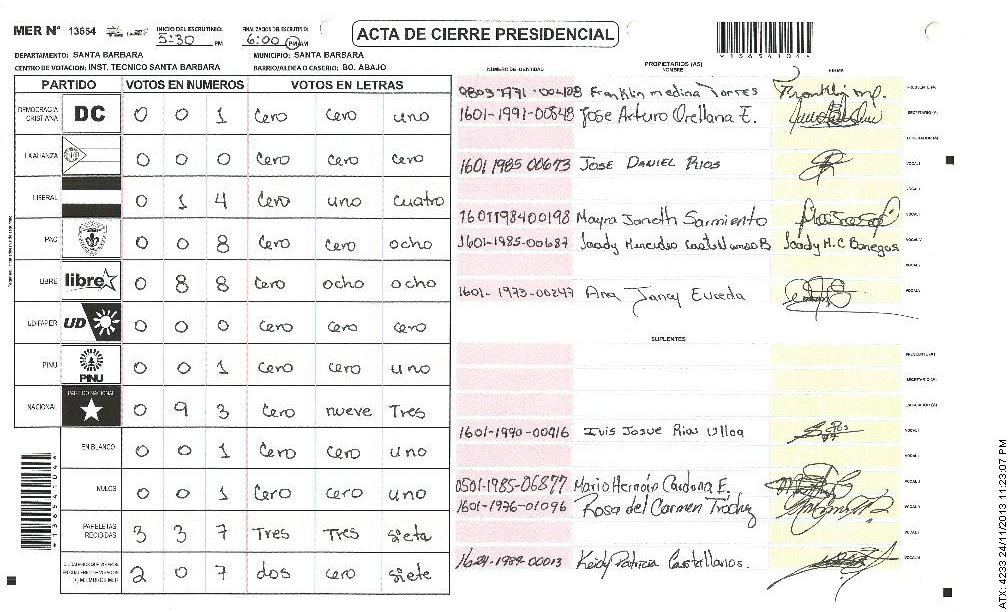 MER N° 13654 INICIO DEL ESCRUTINIO: 5:30 PM FINALIZACION DEL ESCRUTINIO: 6:00 PM AM
ACTA DE CIERRE PRESIDENCIAL
DEPARTAMENTO: SANTA BARBARA MUNICIPIO: SANTA BARBARA
CENTRO DE VOTACION: INST. TECNICO SANTA BARBARA BARRIO/ALDEA O CASERIO: BO. ABAJO
PARTIDO VOTOS EN NUMEROS VOTOS EN LETRAS
DEMOCRACIA CRISTIANA DC 0 0 1 Cero Cero uno
LA ALIANZA 0 0 0 Cero Cero cero
LIBERAL 0 1 4 Cero uno cuatro
PAC 0 0 8 Cero Cero ocho
LIBRE libre 0 8 8 Cero ocho ocho
UD-FAPER UD 0 0 0 Cero Cero Cero
PINU PINU 0 0 1 Cero Cero uno
NACIONAL PARTIDO NACIONAL 0 9 3 Cero nueve Tres
EN BLANCO 0 0 1 Cero Cero uno
NULOS 0 0 1 Cero Cero uno
PAPELETAS RECIBIDAS 3 3 7 Tres Tres siete
2 0 7 dos cero siete
NUMERO DE IDENTIDAD PROPIETARIOS (AS) NOMBRE FIRMA
Franklin medina Torres Franklin mp. PRESIDENTE (A)
1601-1991-00848 Jose Arturo Orellana E. SECRETARIO (A)
ESCRUTADOR (A)
1601 1985 00673 JOSE DANIEL RIOS VOCAL I
1601198400198 Mayra Janeth Sarmiento
1601-1985-00687 Banegas
1601-1973-00247 Ana Jancy Euceda
SUPLENTES
PRESIDENTE (A)
SECRETARIO (A)
ESCRUTADOR (A)
1601-1990-00416 Ivis Josue Rias Ulloa
0501-1985-06877 Mario Hernan Cardona E.
1601-1976-01096 Rosa del Carmen Trochez
00013 Keidy Patricia Castellanos.
*136541044*
ATX: 4233 24/11/2013 11:23:07 PM